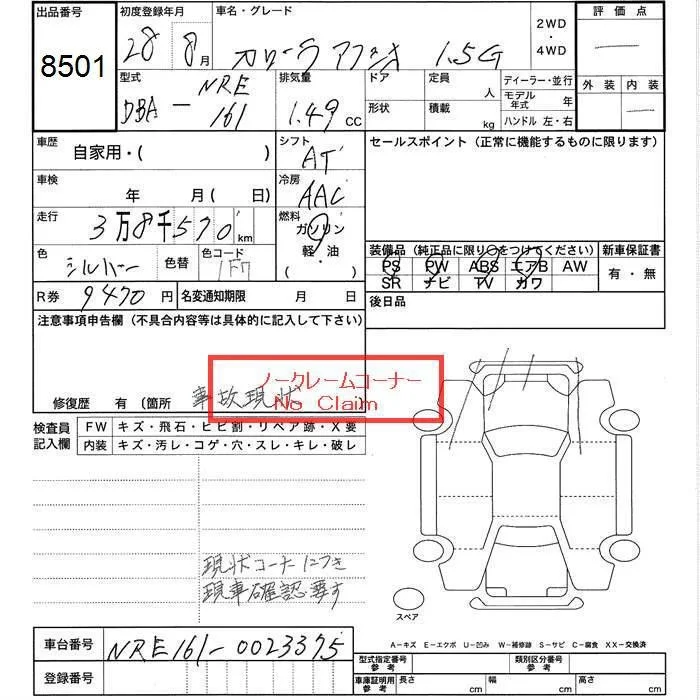 出品番号 8501
初度登録年月 28 8月
車名・グレード カローラ アクシオ 1.5G
2WD・4WD
評価点
外装 内装
型式 DBA - NRE 161
排気量 1.49 cc
ドア 形状
定員 人
積載 kg
ディーラー・並行
モデル年式 年
ハンドル 左・右
車歴 自家用・( )
シフト AT
セールスポイント(正常に機能するものに限ります)
車検 年 月( 日)
冷房 AAC
走行 3万8千570 km
燃料 ガソリン 軽・油 ( )
色 シルバー 色替 色コード 1F7
装備品(純正品に限り○をつけてください)
PS PW ABS エアB AW
SR ナビ TV カワ
新車保証書 有・無
R券 9470円 名変通知期限 月 日
後日品
注意事項申告欄(不具合内容等は具体的に記入して下さい)
ノークレームコーナー
No Claim
修復歴 有(箇所 事故現状 )
検査員記入欄
FW キズ・飛石・ヒビ割・リペア跡・X要
内装 キズ・汚レ・コゲ・穴・スレ・キレ・破レ
現状コーナーにつき
現車確認要す
スペア
A-キズ E-エクボ U-凹み W-補修跡 S-サビ C-腐食 XX-交換済
車台番号 NRE161-0023375
登録番号
型式指定番号 参考
類別区分番号 参考
車庫証明用 参考 長さ 幅 高さ